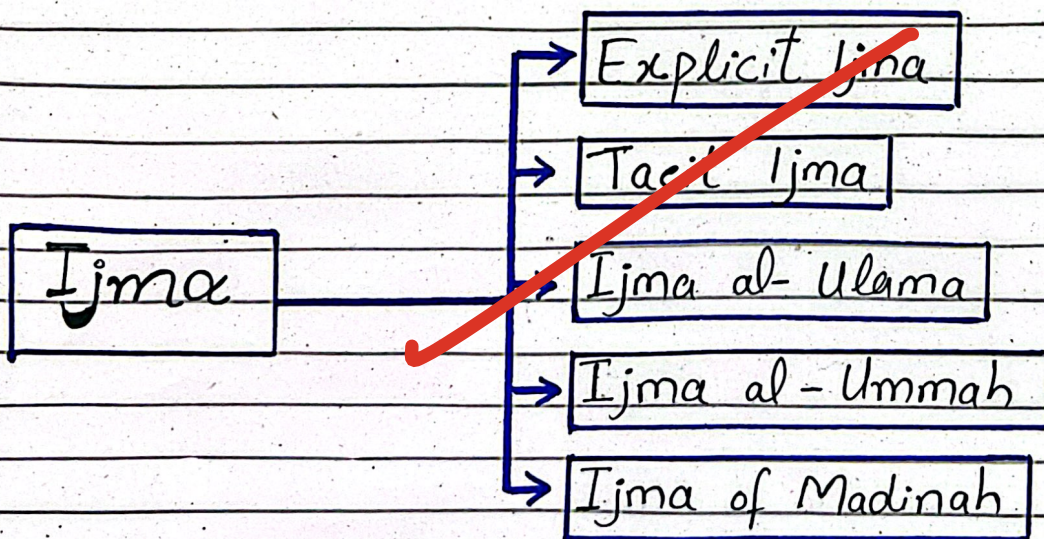 Explicit Ijma
Tacit Ijma
Ijma
Ijma al- Ulama
Ijma al - Ummah
Ijma of Madinah